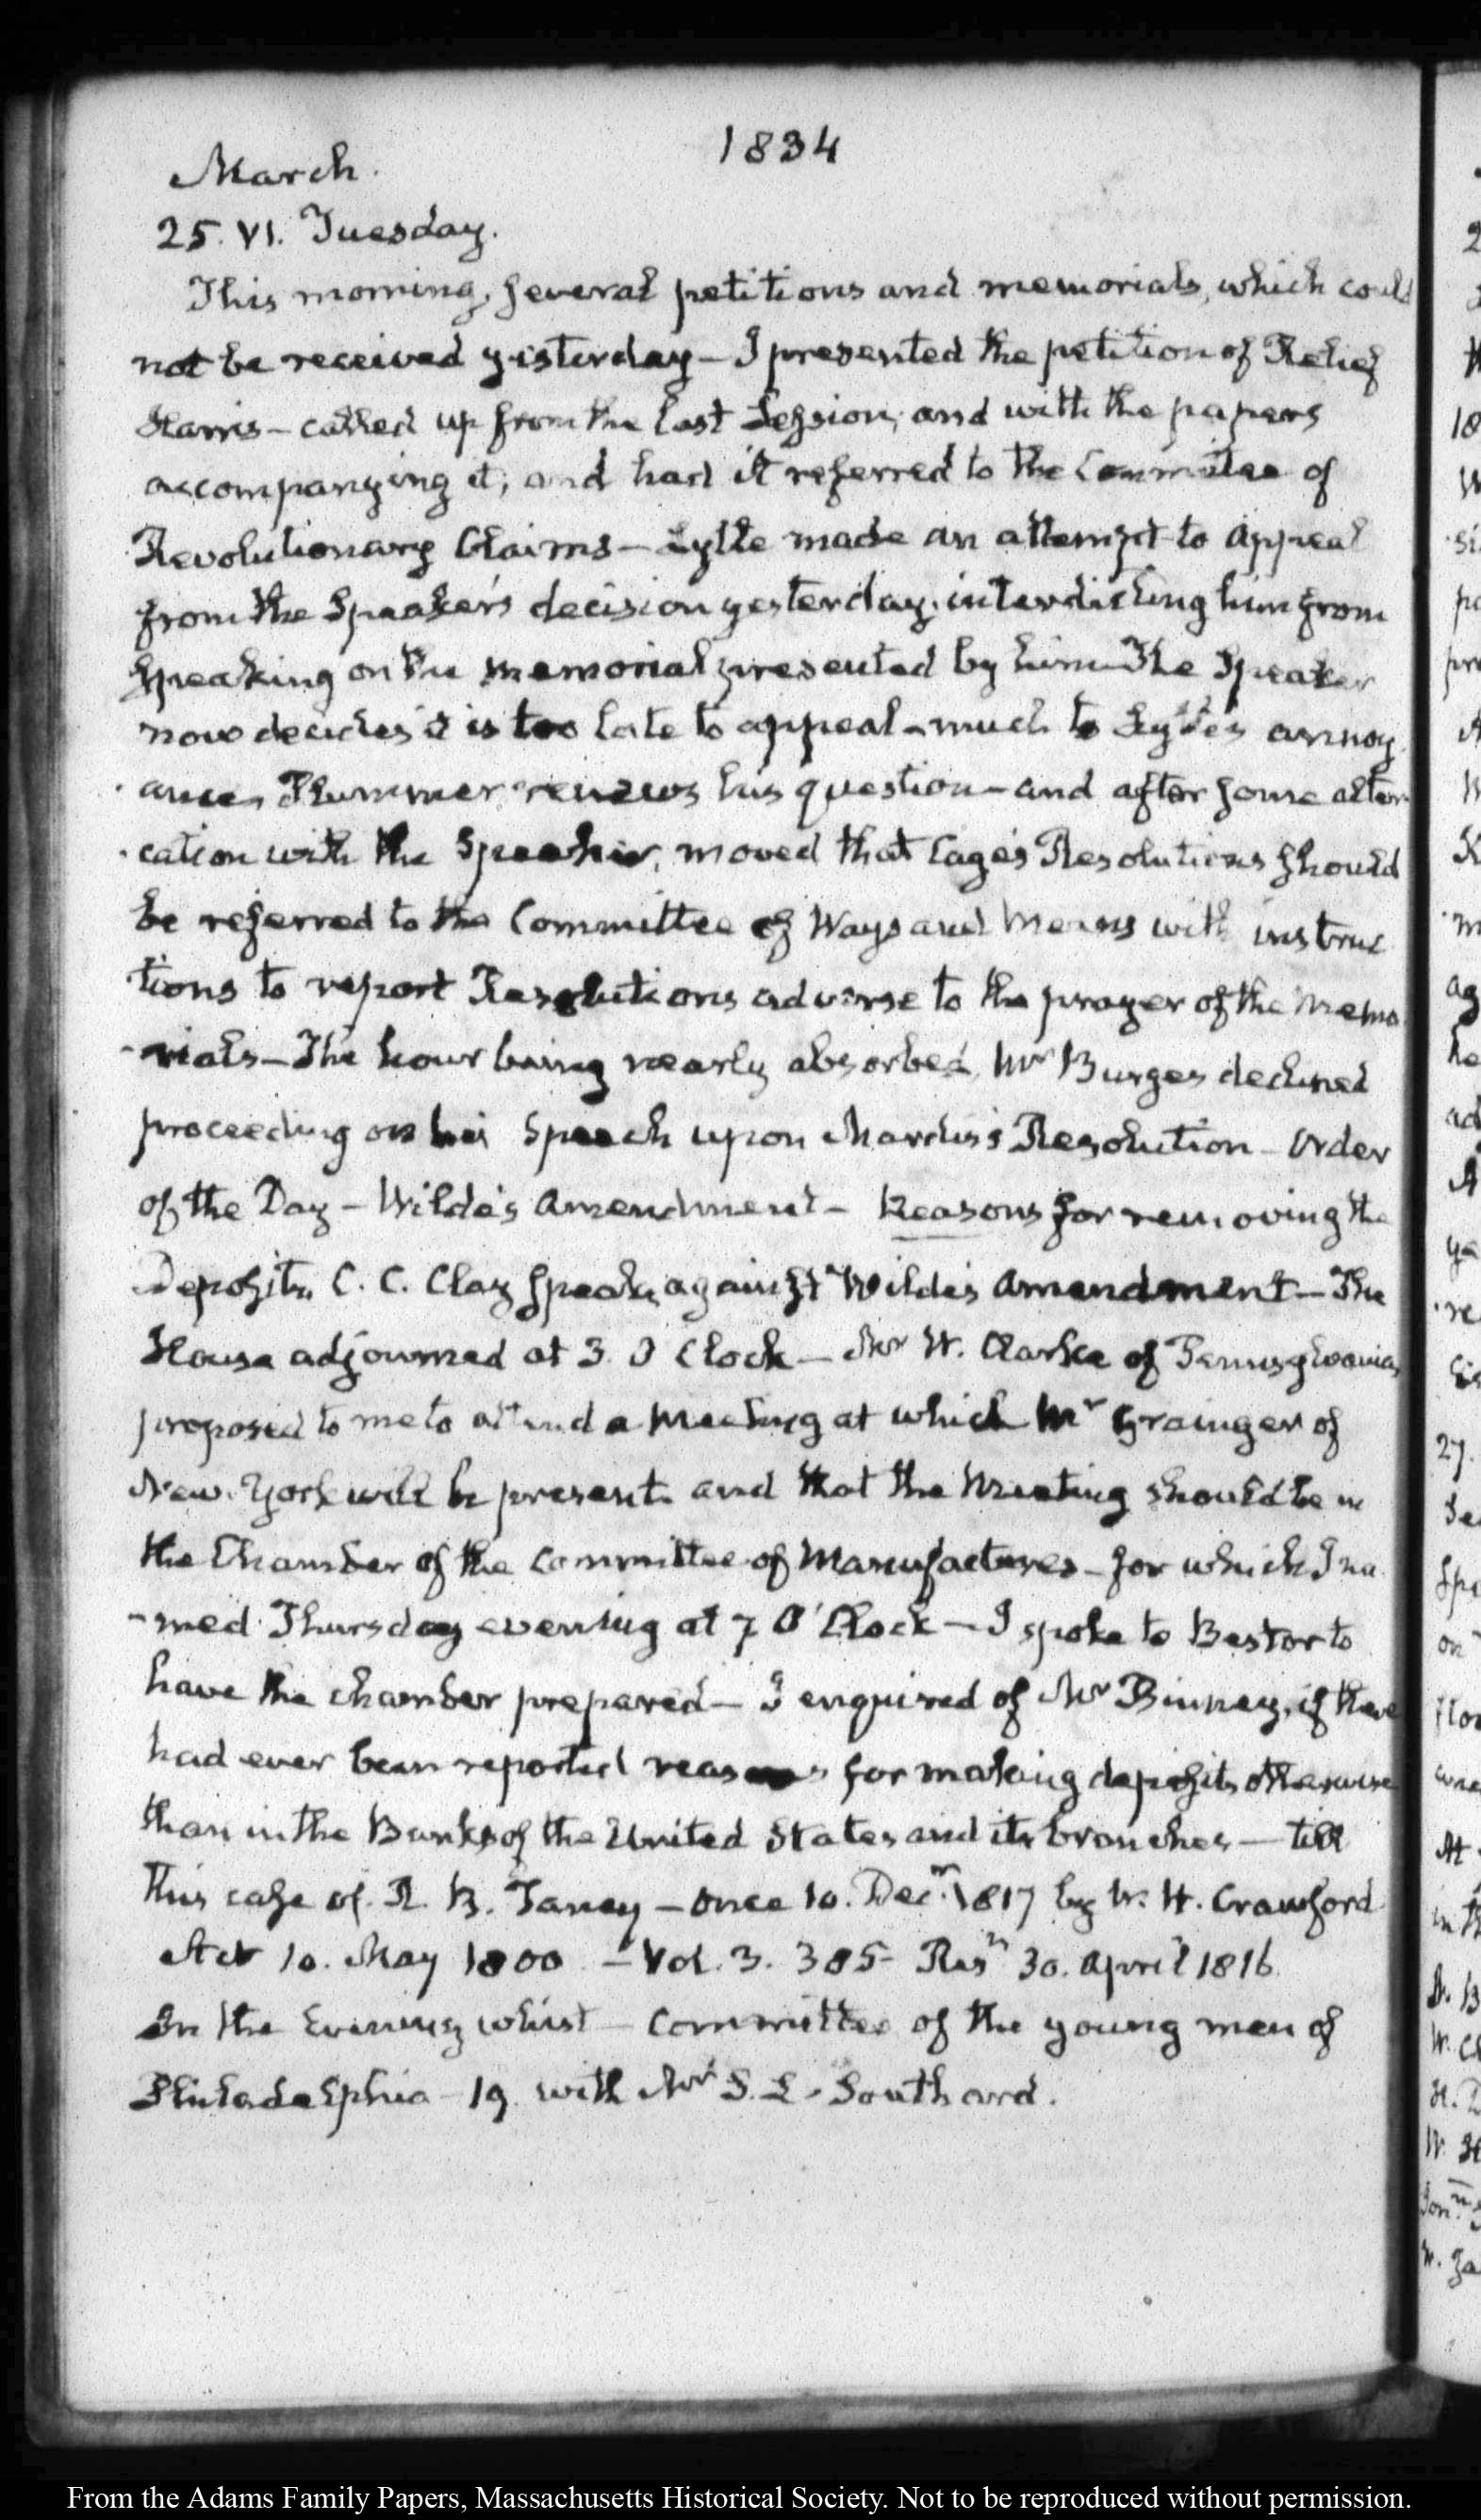 1834
March.
25. VI. Tuesday.
This morning, several petitions and memorials, which could
not be received yesterday — I presented the petition of Relief
Harris — called up from the last Session, and with the papers
accompanying it, and had it referred to the Committee of
Revolutionary Claims — Lytle made an attempt to appeal
from the Speaker's decision yesterday, interdicting him from
speaking on the memorial presented by him — The Speaker
now decides it is too late to appeal — much to Lytle's annoy
ance, Plummer renews his question — and after some alter
cation with the Speaker, moved that Cage's Resolutions should
be referred to the Committee of Ways and Means with instruc
tions to report Resolutions adverse to the prayer of the memo
-rials — The hour being nearly absorbed, Mr Burges declined
proceeding on his Speech upon Mardis's Resolution — Order
of the Day — Wilde's amendment — Reasons for removing the
Deposits, C. C. Clay speaks against Wilde's amendment — The
House adjourned at 3. O Clock — Mr W. Clarke of Pennsylvania,
proposed to me to attend a meeting at which Mr Grainger of
New-York will be present and that the meeting should be in
the Chamber of the Committee of Manufactures — for which I na
-med Thursday evening at 7 O'Clock — I spoke to Bestor to
have the chamber prepared — I enquired of Mr Binney, if there
had ever been reported reasons for making deposits otherwise
than in the Banks of the United States and its branches — till
this case of R. B. Taney — Once 10. Decr. 1817 by W. H. Crawford
Act 10. May 1800 — Vol. 3. 385 Resn 30. April 1816.
In the Evening whist — Committee of the young men of
Philadelphia — 19 with Mr S. L. Southard.
From the Adams Family Papers, Massachusetts Historical Society. Not to be reproduced without permission.